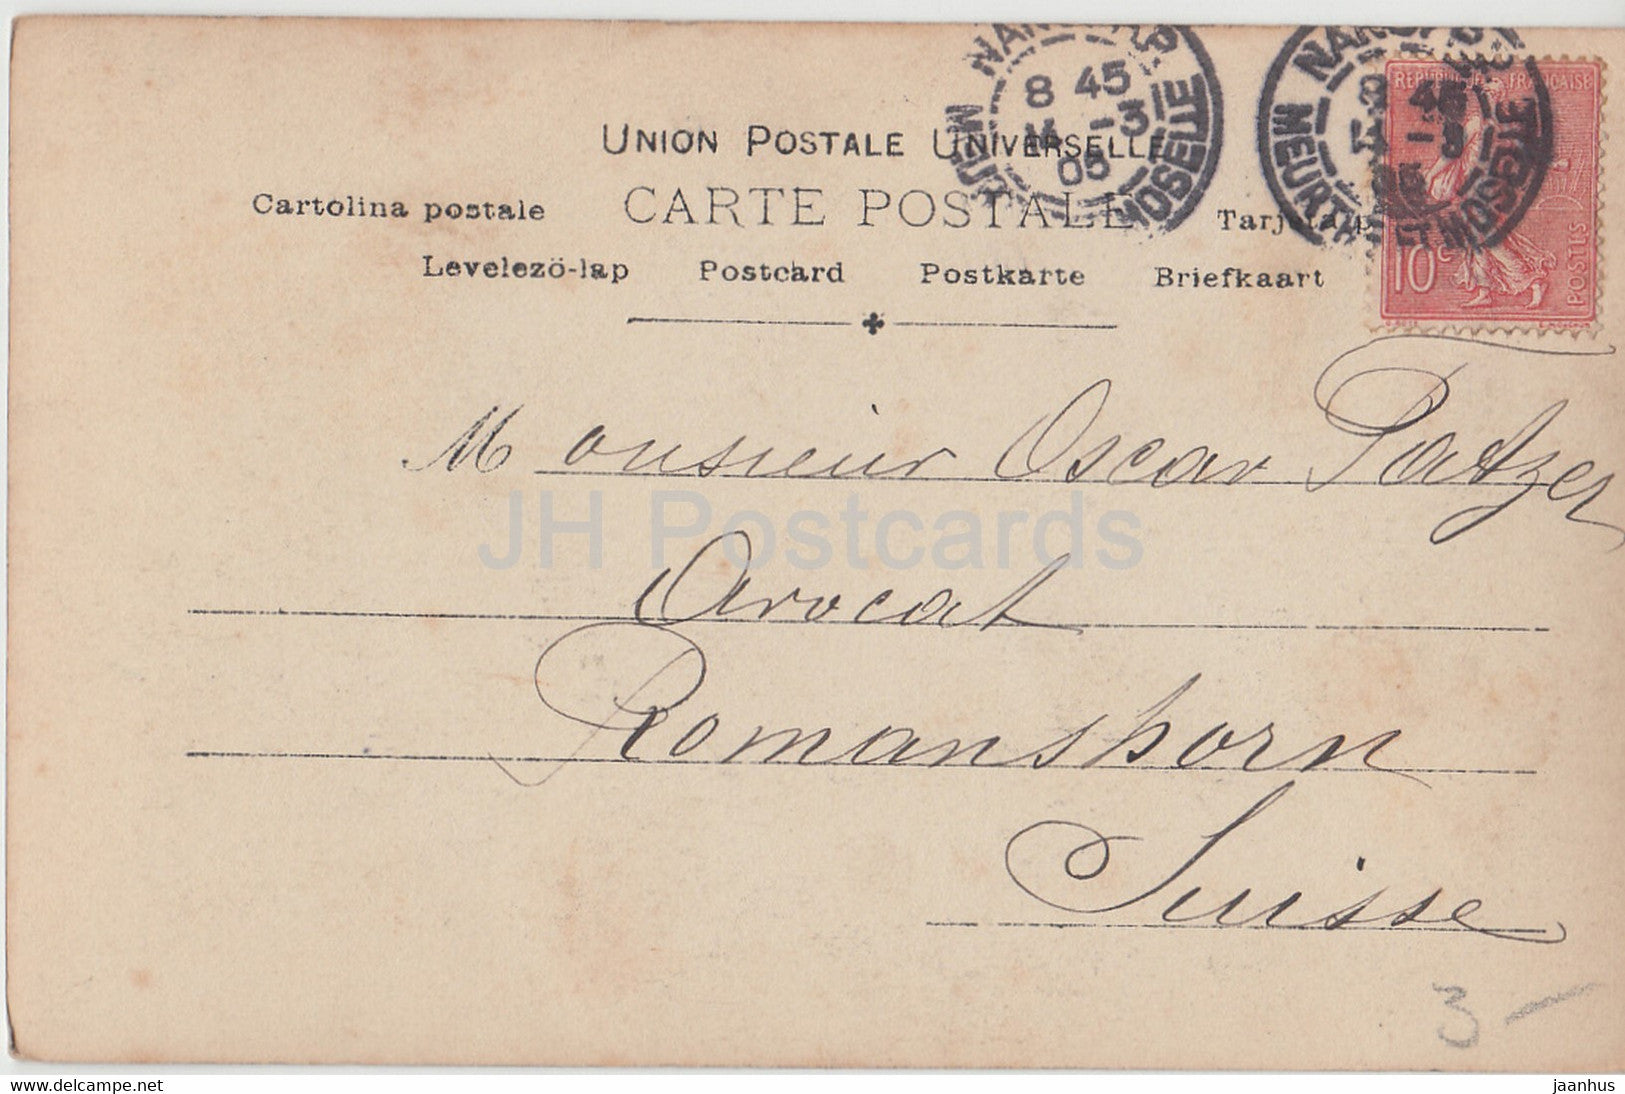 NANCY
8 45
-3
05
MEURTHE ET MOSELLE
NANCY
8 45
MEURTHE ET MOSELLE
REPUBLIQUE FRANÇAISE
10 c
POSTES
UNION POSTALE UNIVERSELLE
Cartolina postale CARTE POSTALE Tarjeta p
Levelező-lap Postcard Postkarte Briefkaart
Monsieur Oscar Patzer
Avocat
Romanshorn
Suisse
3-
JH Postcards
www.delcampe.net
jaanhus